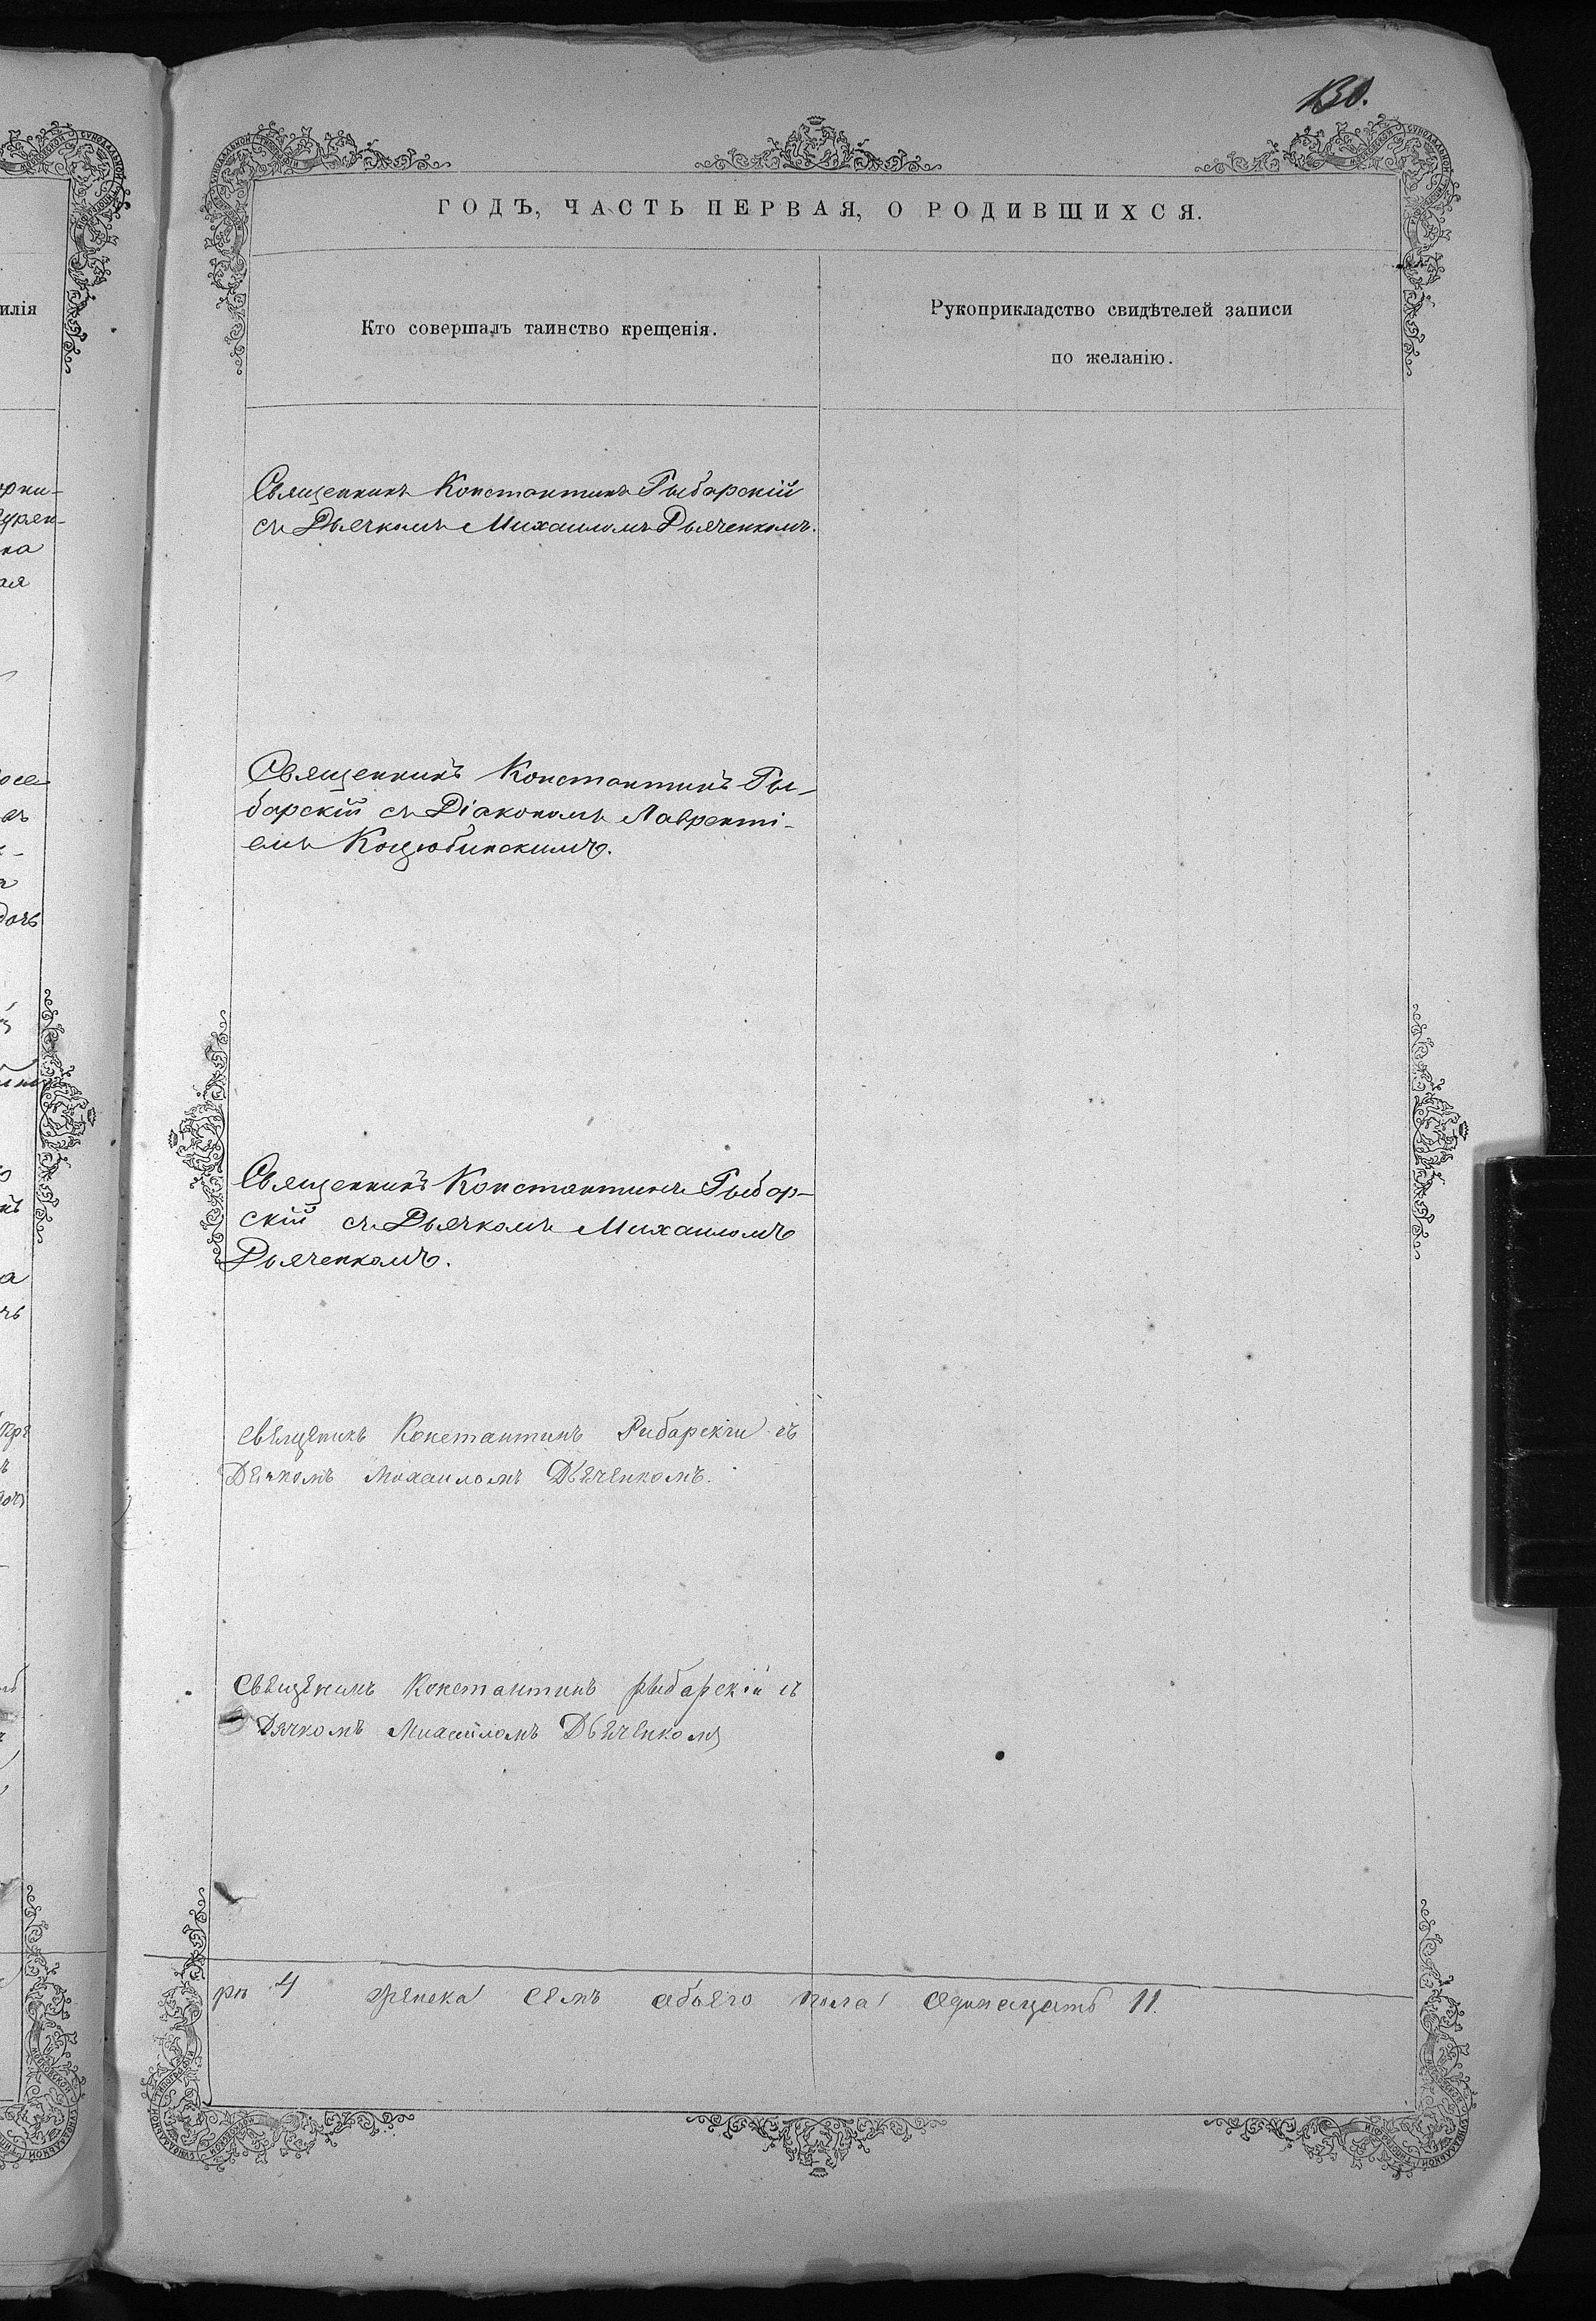 130.
ГОДЪ, ЧАСТЬ ПЕРВАЯ, О РОДИВШИХСЯ.
Кто совершалъ таинство крещенія.
Рукоприкладство свидѣтелей записи
по желанію.
Священникъ Константинъ Рыбарскій
съ Дьячкомъ Михаиломъ Дьяченкомъ.
Священникъ Константинъ Ры-
барскій съ Діакономъ Лавренті-
емъ Коцюбинскимъ.
Священникъ Константинъ Рыбар-
скій съ Дьячкомъ Михаиломъ
Дьяченкомъ.
священикъ Константинъ Рибарскіи съ
Дячкомъ Михаиломъ Дьяченкомъ.
Священикъ Константинъ рыбарскій съ
Дячкомъ Михаиломъ Дьяченкомъ
4 женска семъ обоего пола одинацать 11.